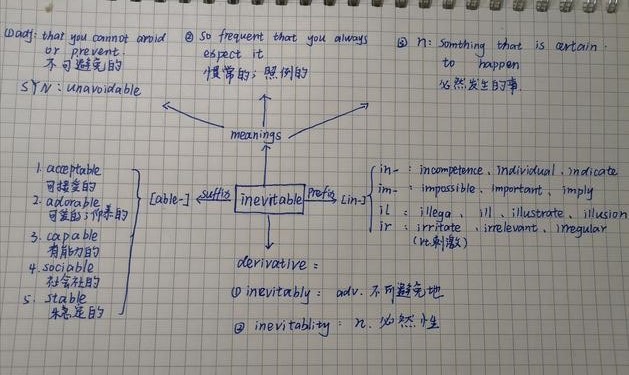 ①adj: that you cannot avoid
or prevent.
不可避免的
SYN: unavoidable
② so frequent that you always
expect it
惯常的；照例的
③ n: somthing that is certain
to happen
必然发生的事.
meanings
1. acceptable
可接受的
2. adorable
可爱的;仰慕的
3. capable
有能力的
4. sociable
社会性的
5. stable
稳定的
[able-] suffix inevitable Prefix [in-]
in- : incompetence、individual、indicate
im- : impossible、important、imply
il : illega、ill、illustrate、illusion
ir : irritate、irrelevant、irregular
(vt.刺激)
derivative:
① inevitably: adv. 不可避免地
② inevitablity: n. 必然性